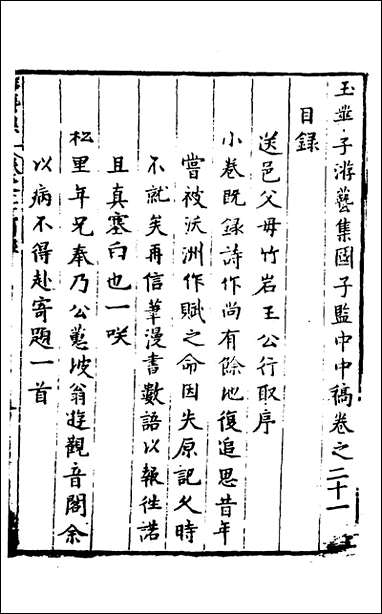 玉華子游藝集國子監中中稿卷之二十一
目錄
送邑父母竹岩王公行取序
小卷既錄詩作尚有餘地復追思昔年
嘗被沃洲作賦之命因失原記久時
不就矣再信筆漫書數語以報徃諾
且真塞白也一咲
松里年兄奉乃公坡翁遊觀音閣余
以病不得赴寄題一首